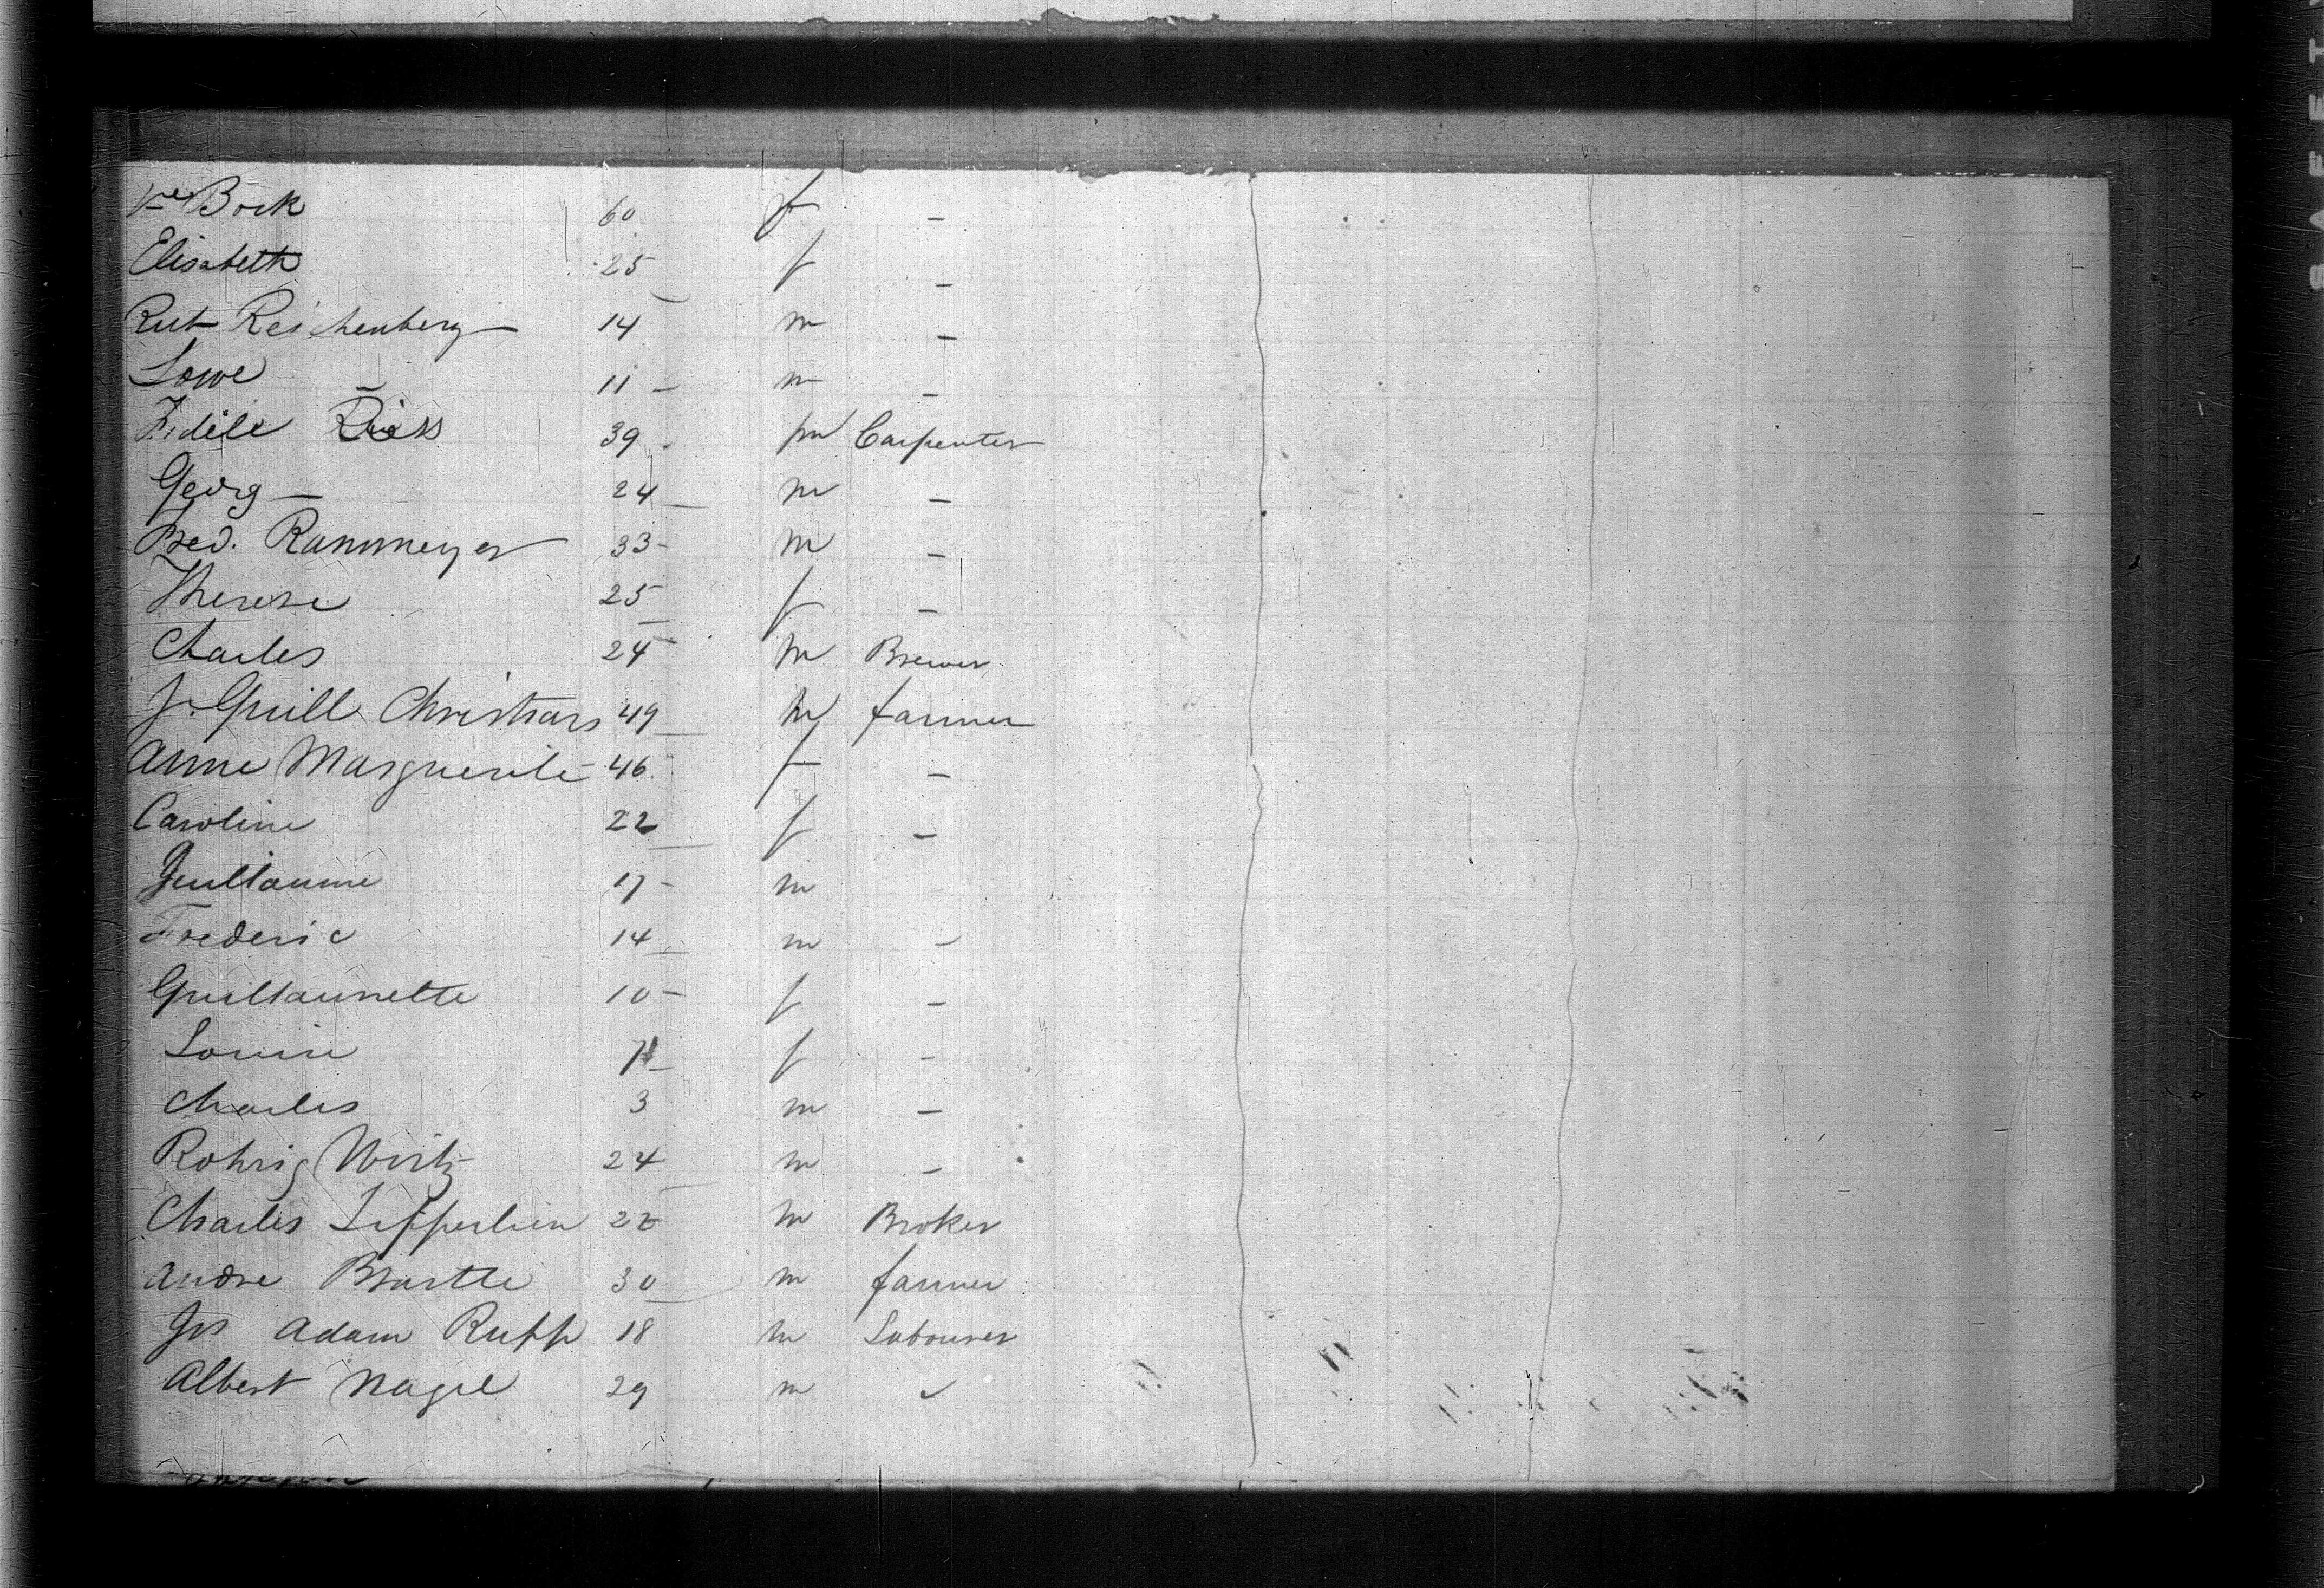 Ve Bock 60 f –
Elisabeth 25 f –
Rut Reichenberg 14 m –
Lowe 11 – m –
Fidele Riess 39 m Carpenter
Georg – 24 m –
Fred. Rammeyer 33 – m –
Therese 25 f –
Charles 24 m Brewer
J. Guill Christians 49 m farmer
Anne Marguerite 46 f –
Caroline 22 f –
Guillaume 17 – m
Frederic 14 m –
Guillaumette 10 – f –
Louise f –
Charles 3 m –
Rohrig Wirtz 24 m –
Charles 22 m Broker
Andre 30 m farmer
Jos Adam Rupp 18 m Labourer
Albert Nagel 29 m
SAFETY